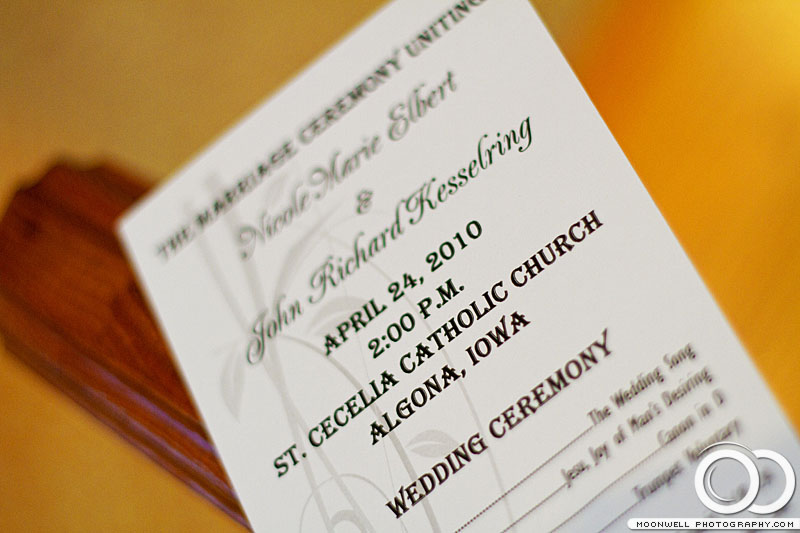 THE MARRIAGE CEREMONY UNITING
Nicole Marie Elbert
&
John Richard Kesselring
APRIL 24, 2010
2:00 P.M.
ST. CECELIA CATHOLIC CHURCH
ALGONA, IOWA
WEDDING CEREMONY
The Wedding Song
Jesu, Joy of Man's Desiring
Canon in D
Trumpet Voluntary
MOONWELL PHOTOGRAPHY.COM